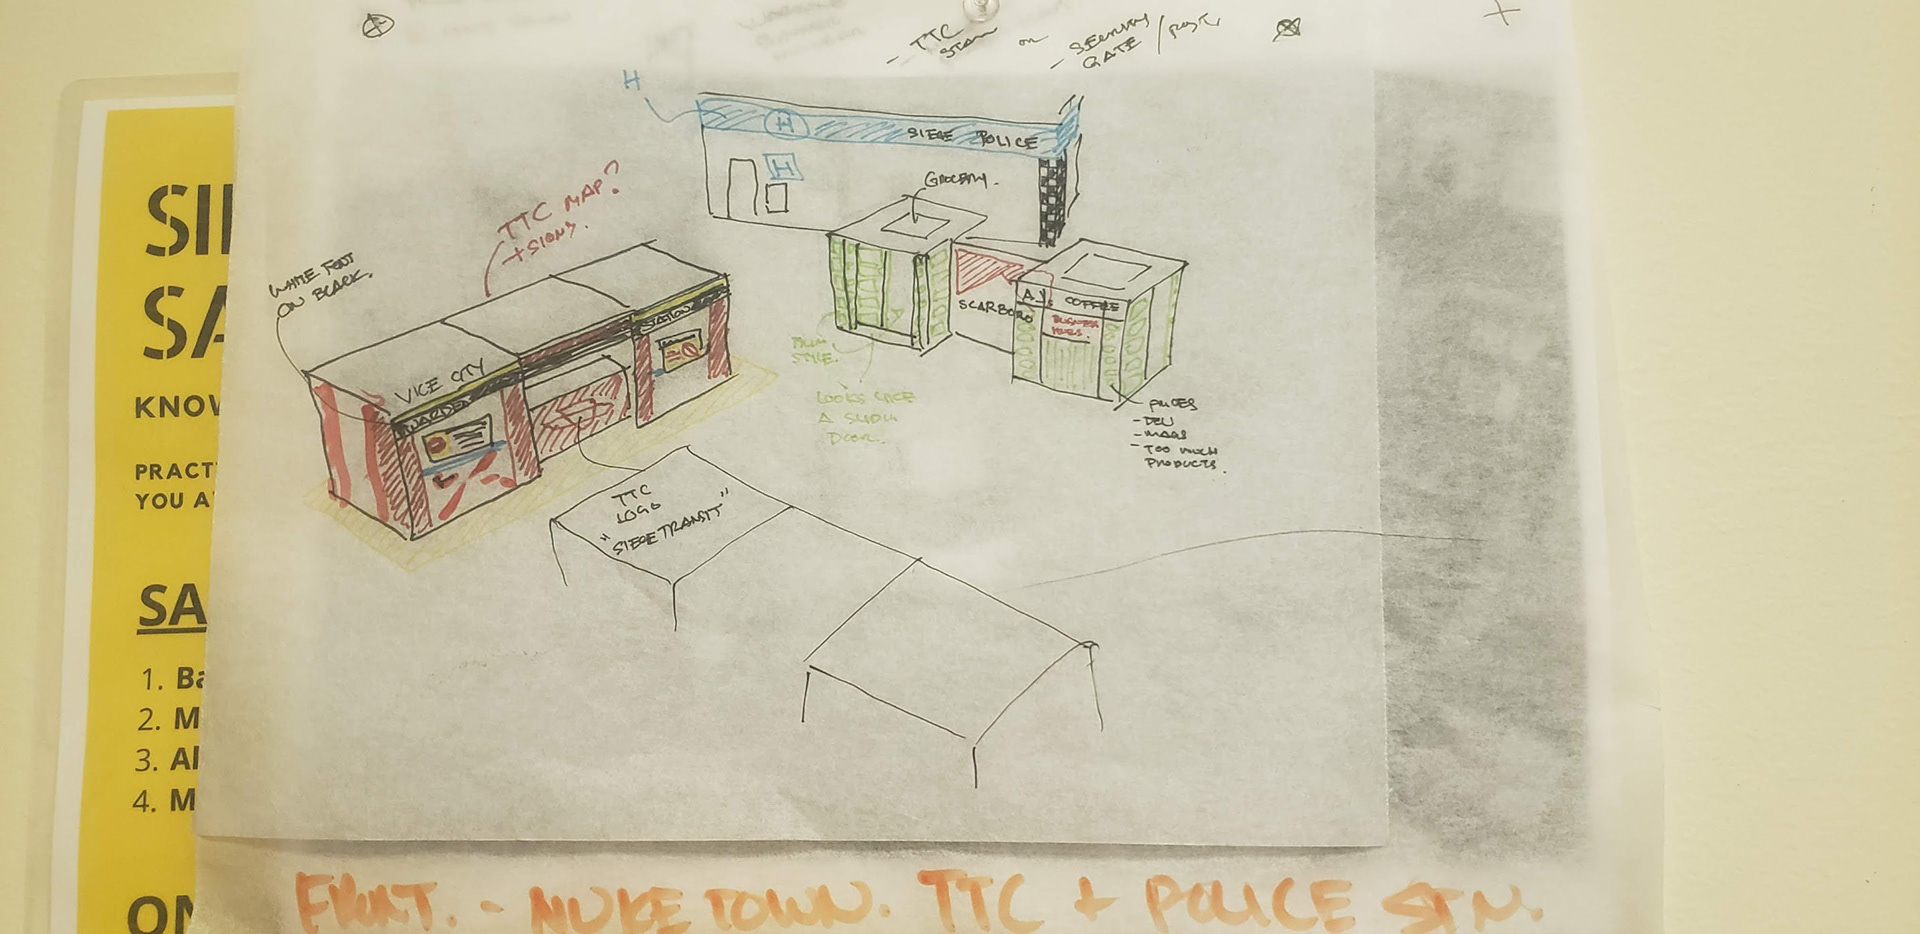 - TTC
STAN
or
- SECURITY
GATE / POST.
H
H
SIEGE POLICE
H
GROCERY.
TTC MAP?
+ SIGNS.
WHITE FONT
ON BLACK.
VICE CITY
WARDEN
STATION
SCARBORO
A.J's COFFEE
LOOKS LIKE
A SLIDING
DOOR.
STYLE.
- PRICES
- DELI
- MAGS
- TOO MUCH
PRODUCTS.
TTC
LOGO
"SIEGE TRANSIT"
SA
KNOW
PRACT
YOU A
SA
1. Ba
2. M
3. Al
4. M
ON
FRONT. - NUKETOWN. TTC + POLICE STN.